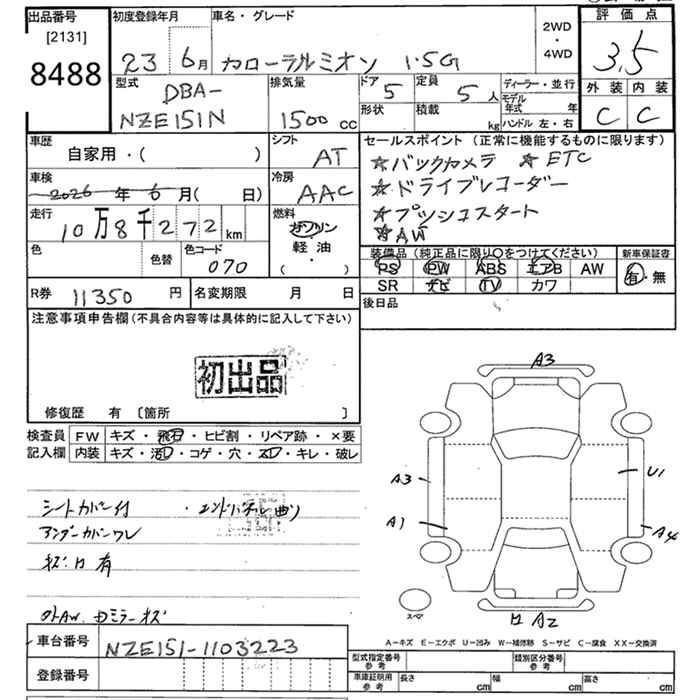 出品番号
[2131]
8488
初度登録年月
23 6月
車名・グレード
カローラルミオン 1.5G
2WD
・
4WD
評価点
3.5
外装 内装
C C
型式
DBA-
NZE151N
排気量
1500 cc
ドア
5
定員
5人
形状
積載
kg
ディーラー・並行
モデル年式 年
ハンドル 左・右
車歴
自家用・( )
シフト
AT
車検
2026年6月( 日)
冷房
AAC
走行
10万8千272km
燃料
ガソリン
軽油
( ・ )
色
色替
色コード
070
R券 11350円
名変期限 月 日
セールスポイント (正常に機能するものに限ります)
☆バックカメラ ☆ETC
☆ドライブレコーダー
☆プッシュスタート
☆AW
装備品 (純正品に限り○をつけてください)
PS PW ABS エアB AW
SR ナビ TV カワ
新車保証書
有・無
後日品
注意事項申告欄 (不具合内容等は具体的に記入して下さい)
初出品
修復歴 有 [箇所 ]
検査員記入欄
FW キズ・飛石・ヒビ割・リペア跡・×要
内装 キズ・汚レ・コゲ・穴・スレ・キレ・破レ
シートカバー付 ・エンドパネル曲り
アンダーカバーワレ
キズ凹有
外AW、Dミラーキズ
A3
A3
U1
A1
A4
スペア
凹 A2
A−キズ E−エクボ U−凹み W−補修跡 S−サビ C−腐食 XX−交換済
車台番号 NZE151-1103223
登録番号
型式指定番号
参考
類別区分番号
参考
車庫証明用
参考
長さ cm
幅 cm
高さ cm